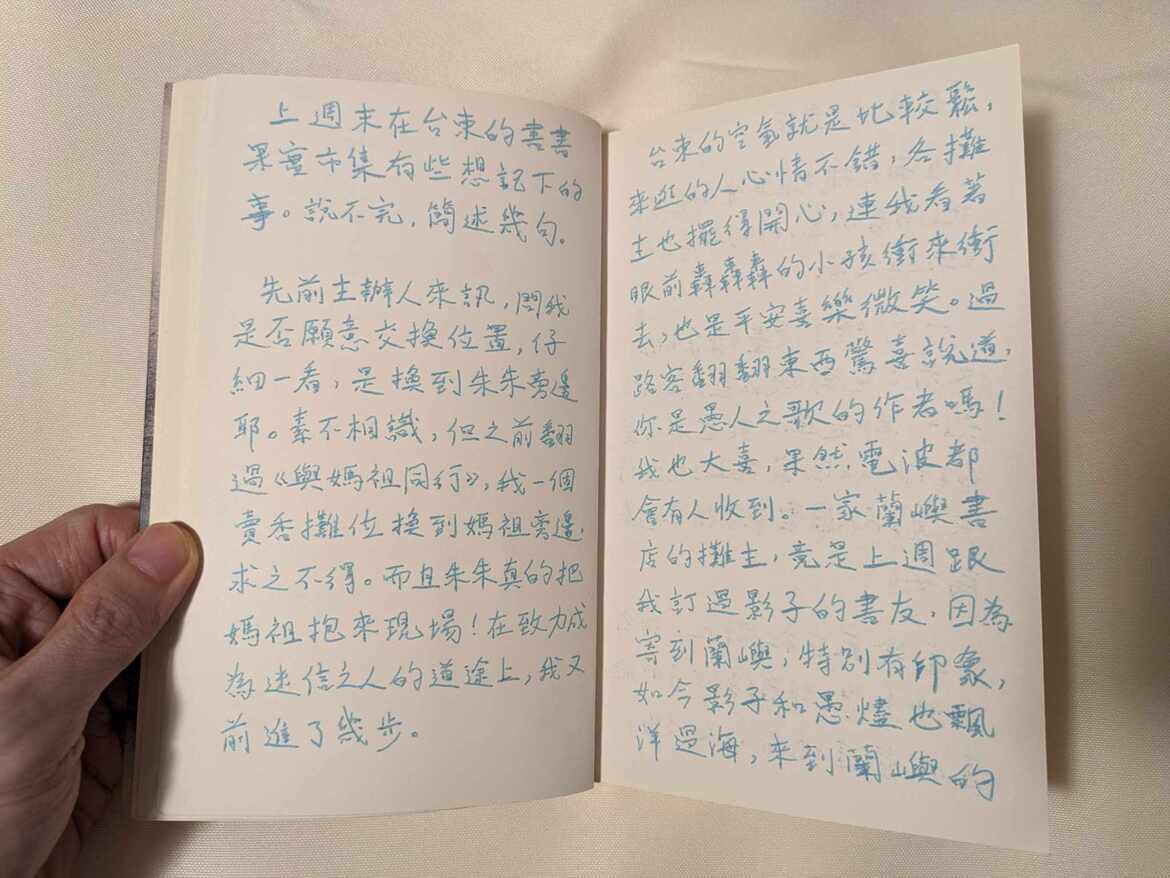 上週末在台東的書書
果實市集有些想記下的
事。說不完,簡述幾句。
先前主辦人來訊,問我
是否願意交換位置,仔
細一看,是換到朱朱旁邊
耶。素不相識,但之前翻
過《與媽祖同行》,我一個
賣香攤位換到媽祖旁邊,
求之不得。而且朱朱真的把
媽祖抱來現場!在致力成
為迷信之人的道途上,我又
前進了幾步。
台東的空氣就是比較鬆,
來逛的人心情不錯,各攤
主也擺得開心,連我看著
眼前轟轟轟的小孩衝來衝
去,也是平安喜樂微笑。過
路客翻翻東西驚喜說道,
你是愚人之歌的作者嗎!
我也大喜,果然電波都
會有人收到。一家蘭嶼書
店的攤主,竟是上週跟
我訂過影子的書友,因為
寄到蘭嶼,特別有印象,
如今影子和愚燼也飄
洋過海,來到蘭嶼的